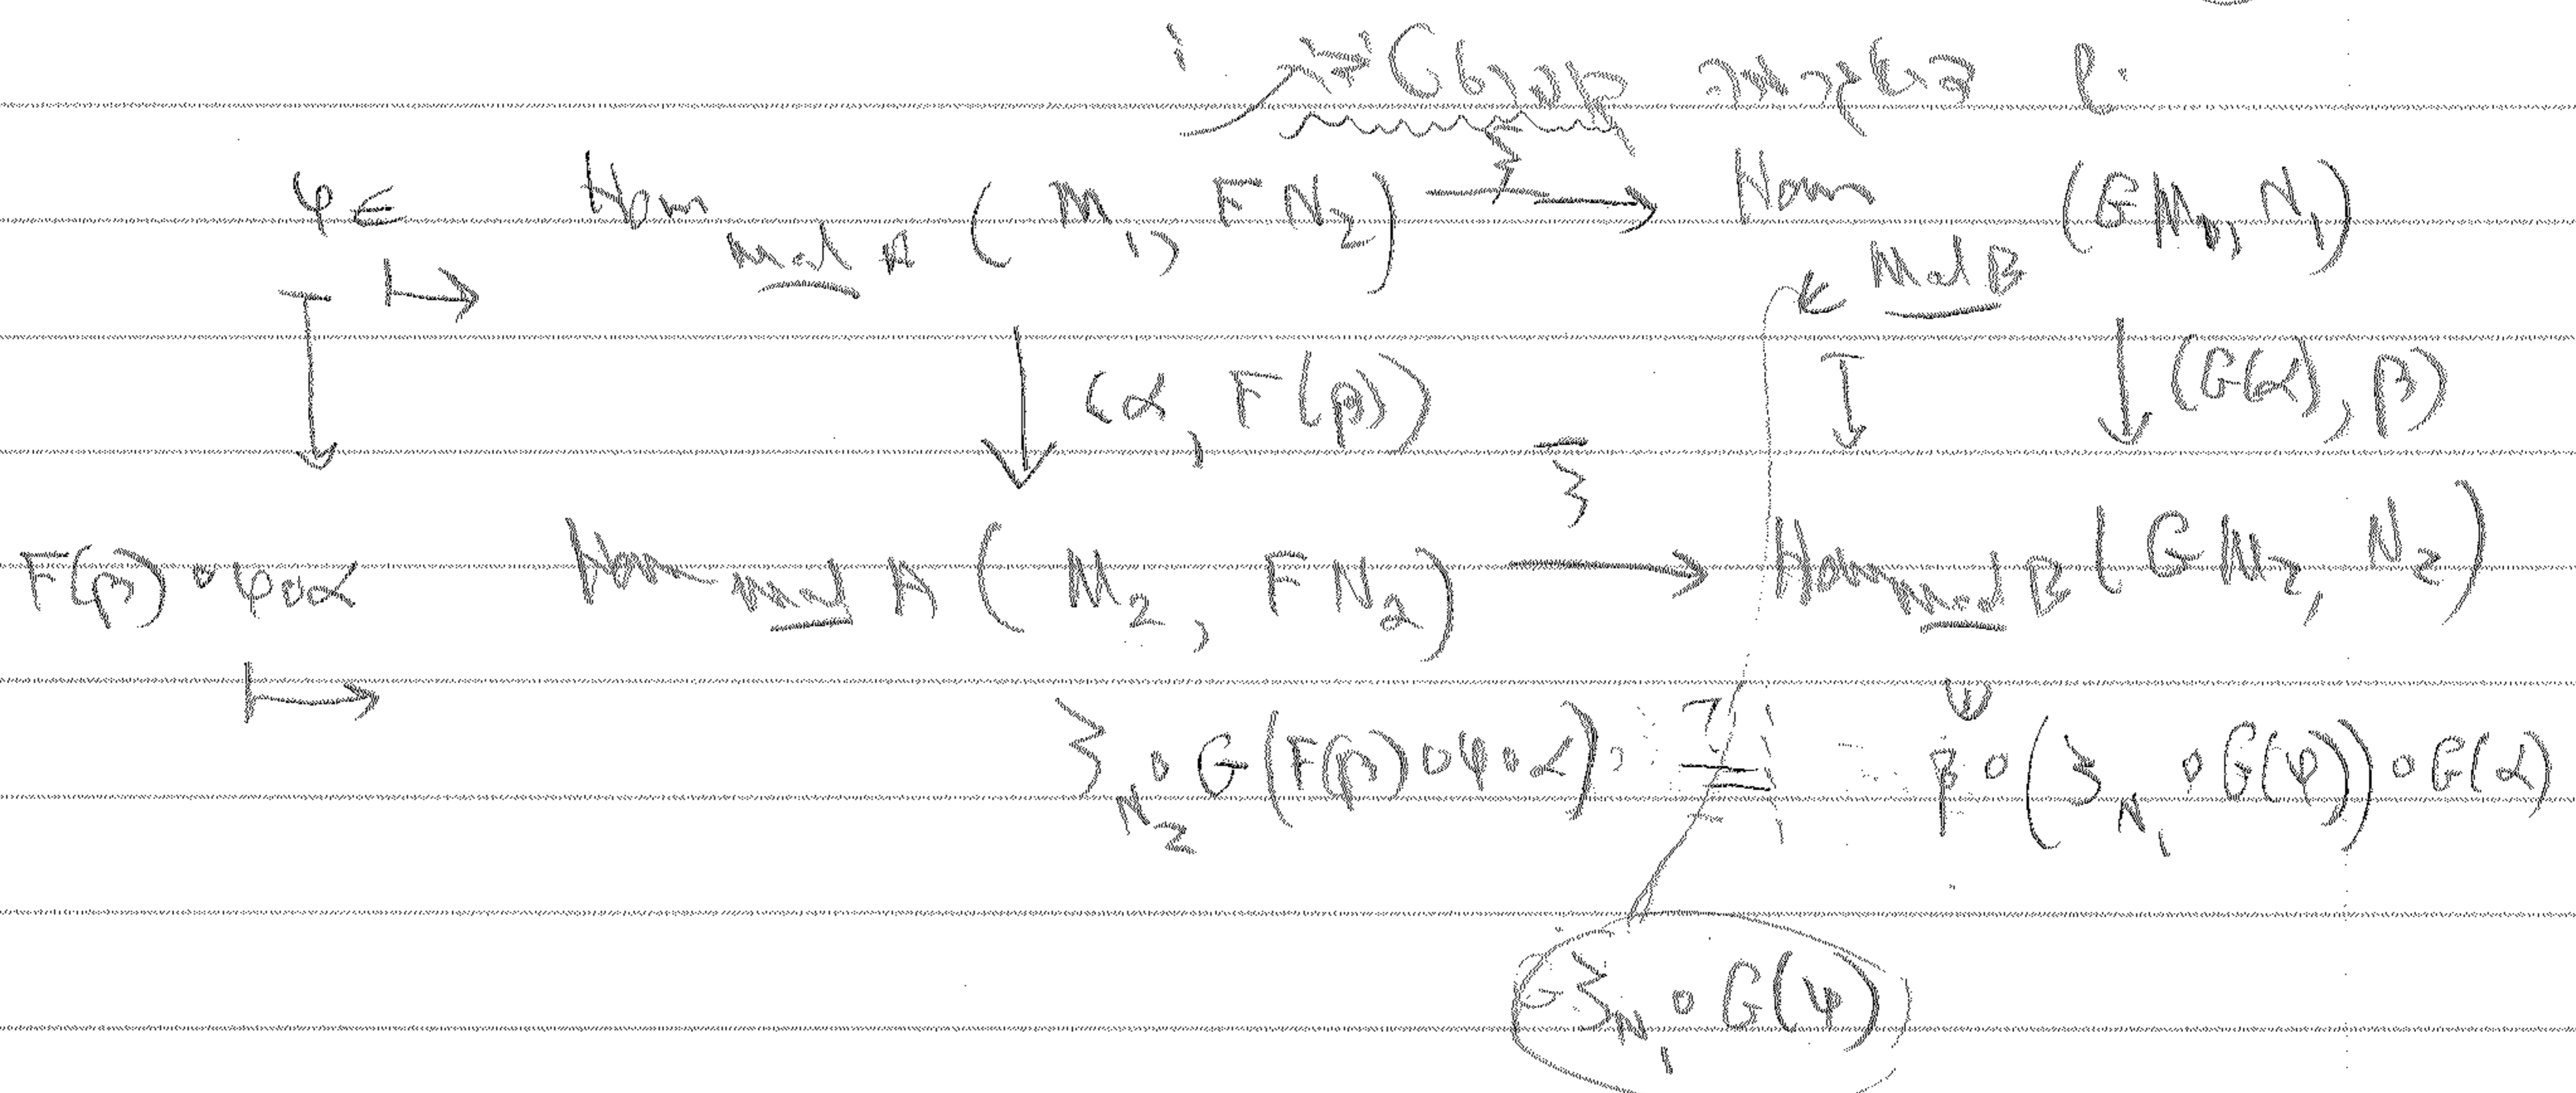 φ ∈ Hom_{Mod A} (M₁, FN₂) —ξ→ Hom_{Mod B} (GM₁, N₁)
↦ ∈
↓ (α, F(β)) ξ̄ ↓ (G(α), β)
F(β)∘φ∘α Hom_{Mod A} (M₂, FN₂) → Hom_{Mod B} (GM₂, N₂)
↦
ξ_{N₂} ∘ G(F(β)∘φ∘α) =? β∘(ξ_{N₁} ∘ G(φ))∘G(α)
ξ_{N₁} ∘ G(φ)